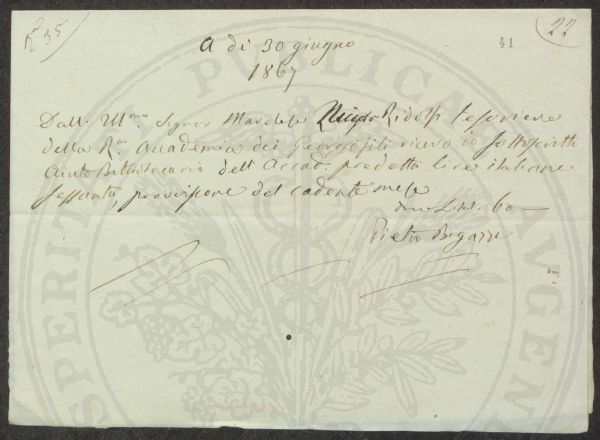 R.ª 35
41
22
A dì 30 giugno
1867
Dall. Ill.mo Signor Marchese Ridolfi Tesoriere
della R.ª Accademia dei Georgofili ricevo io sottoscritto
Aiuto Bibliotecario dell'Accad. predetta lire italiane
sessanta, provvisione del cadente mese
60 —
Pietro Bigazzi
PROSPERITATI PUBLICAE AUGENDAE